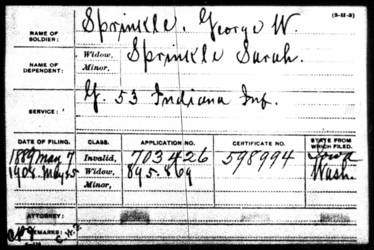 (3-M-3)
NAME OF SOLDIER: Sprinkle, George W.
NAME OF DEPENDENT: Widow, Sprinkle Sarah.
Minor,
SERVICE: G. 53 Indiana Inf.
DATE OF FILING. CLASS. APPLICATION NO. CERTIFICATE NO. STATE FROM WHICH FILED.
1889 May 7 Invalid, 703426 598994 Iowa
1908. May 25 Widow, 895.869 Wash.
Minor,
ATTORNEY:
REMARKS: